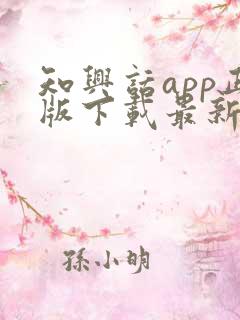 知興話app正
版下載最新
孫小明